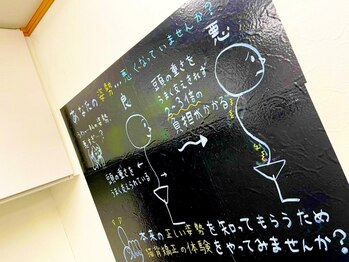 あなたの姿勢...悪くなっていませんか?
良
悪
頭の重さを
うまく支えきれず
2~3倍の
負担がかかる
頭の重さを
うまく支えられている
本来の正しい姿勢を知ってもらうため
猫背矯正の体験をやってみませんか?